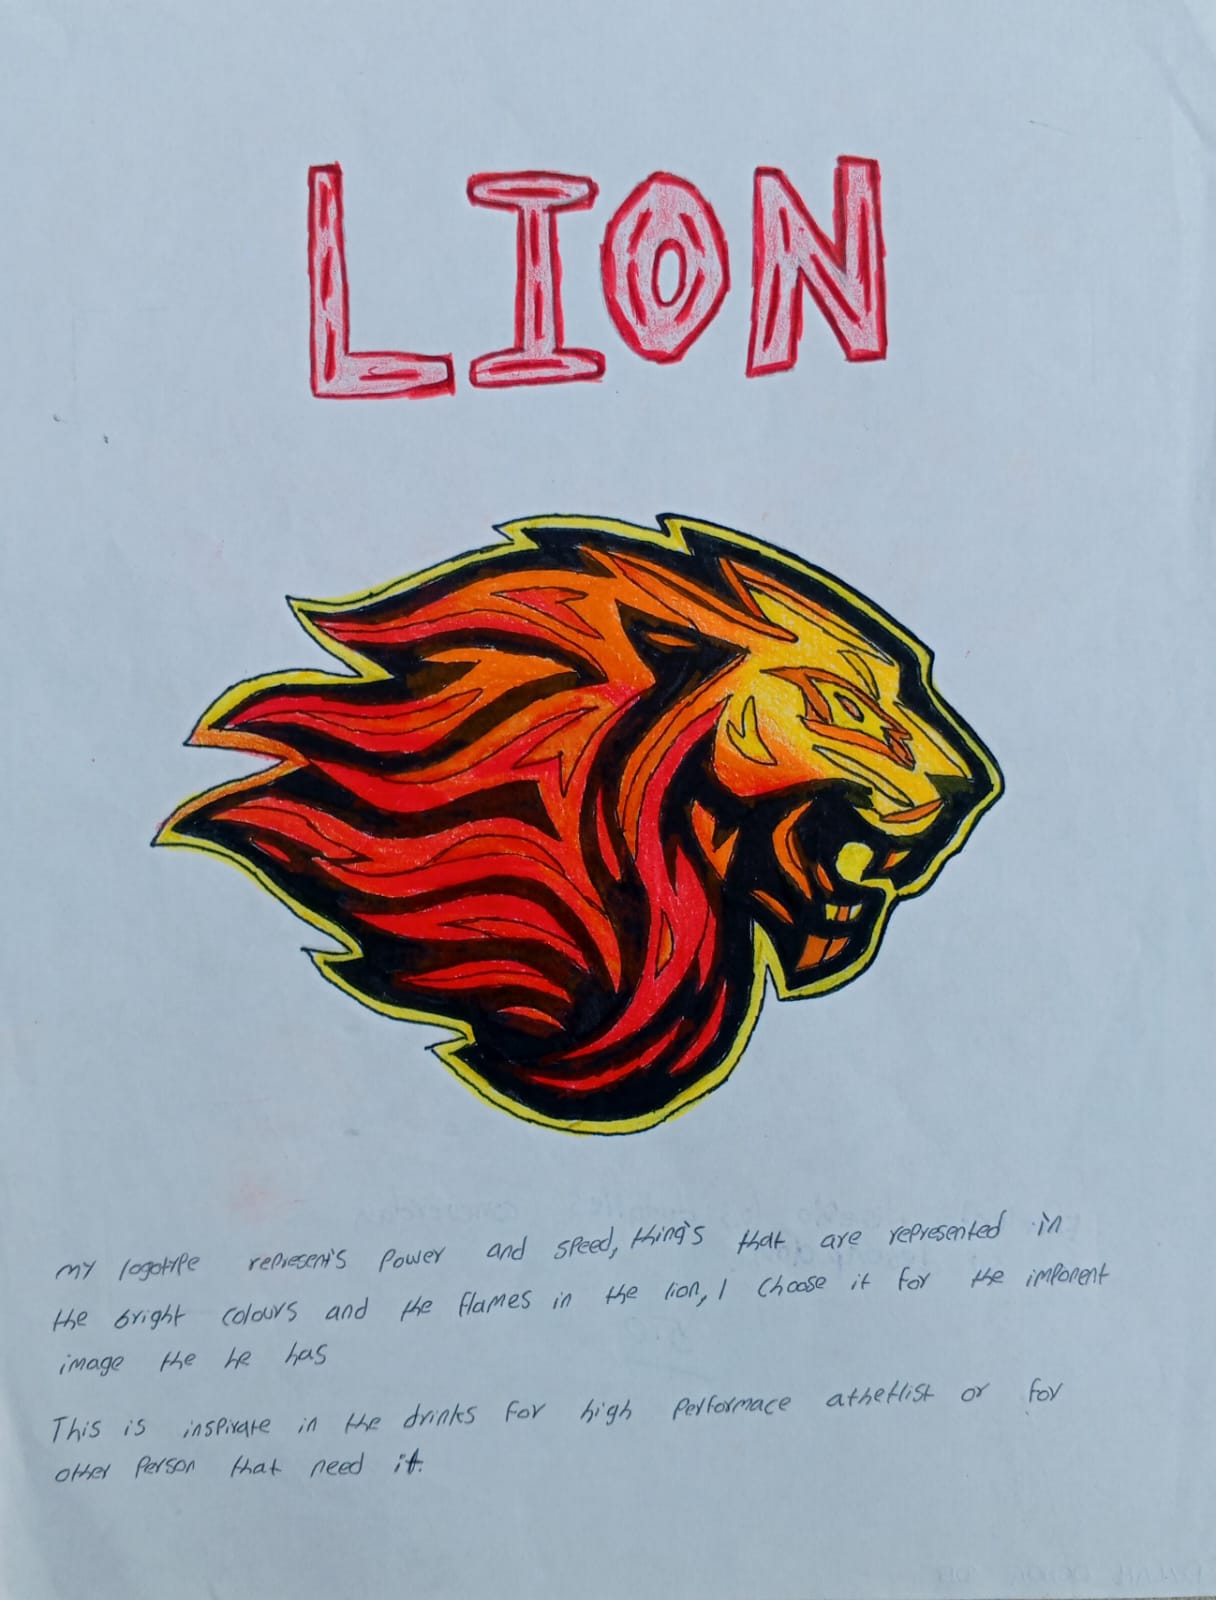 LION
my logotype represent's power and speed, thing's that are represented in
the bright colours and the flames in the lion, I choose it for the imponent
image the he has
This is inspirate in the drinks for high performace athetlist or for
other person that need it.